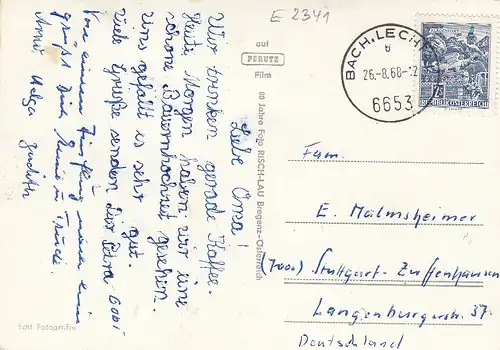 E 2341
BACH, LECHT
b
26.-8.68-12
6653
REPUBLIK ÖSTERREICH
auf
PERUTZ
Film
80 Jahre Foto RISCH-LAU Bregenz-Österreich
Liebe Oma!
Wir trinken gerade Kaffee.
Heute Morgen haben wir eine
schöne Bauernhochzeit gesehen.
Uns gefällt es sehr gut.
Viele Grüße senden Dir Petra Gabi
Von einem Ausflug
grüßt Dich
Arno Helga
Fam.
E. Malmsheimer
(7000) Stuttgart-Zuffenhausen
Langenburgerstr. 37.
Deutschland
Echt Fotografin